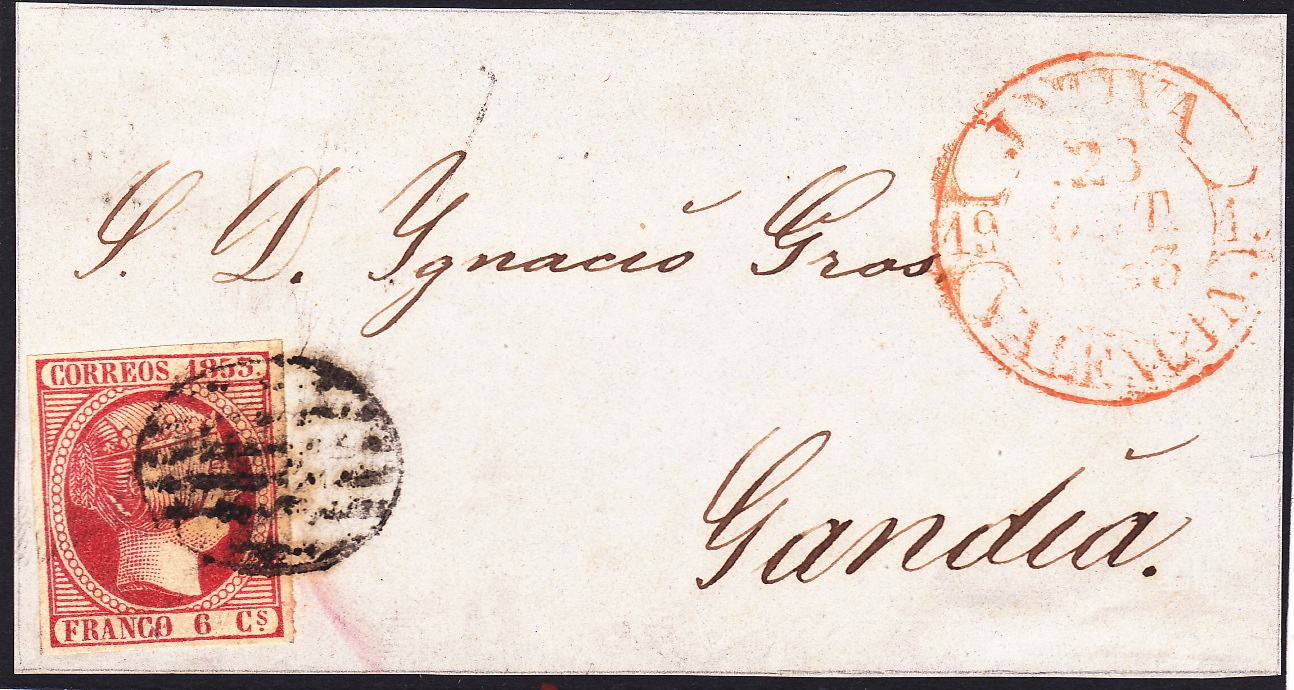 S. D. Ygnacio Gros.
Gandía.
CORREOS 1853.
FRANCO 6 Cs
JATIVA
23
19
VALENCIA